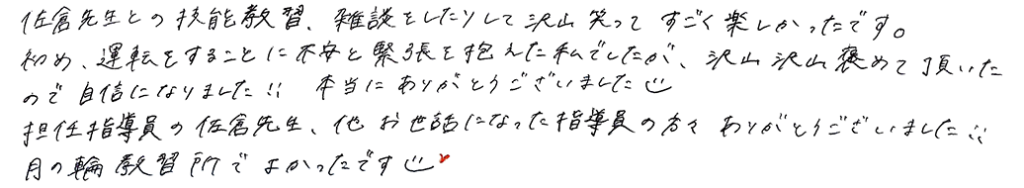 佐倉先生との技能教習、雑談をしたりして沢山笑ってすごく楽しかったです。
初め、運転をすることに不安と緊張を抱えた私でしたが、沢山沢山褒めて頂いた
ので自信になりました!! 本当にありがとうございました
担任指導員の佐倉先生、他お世話になった指導員の方々ありがとうございました!!
月の輪教習所でよかったです